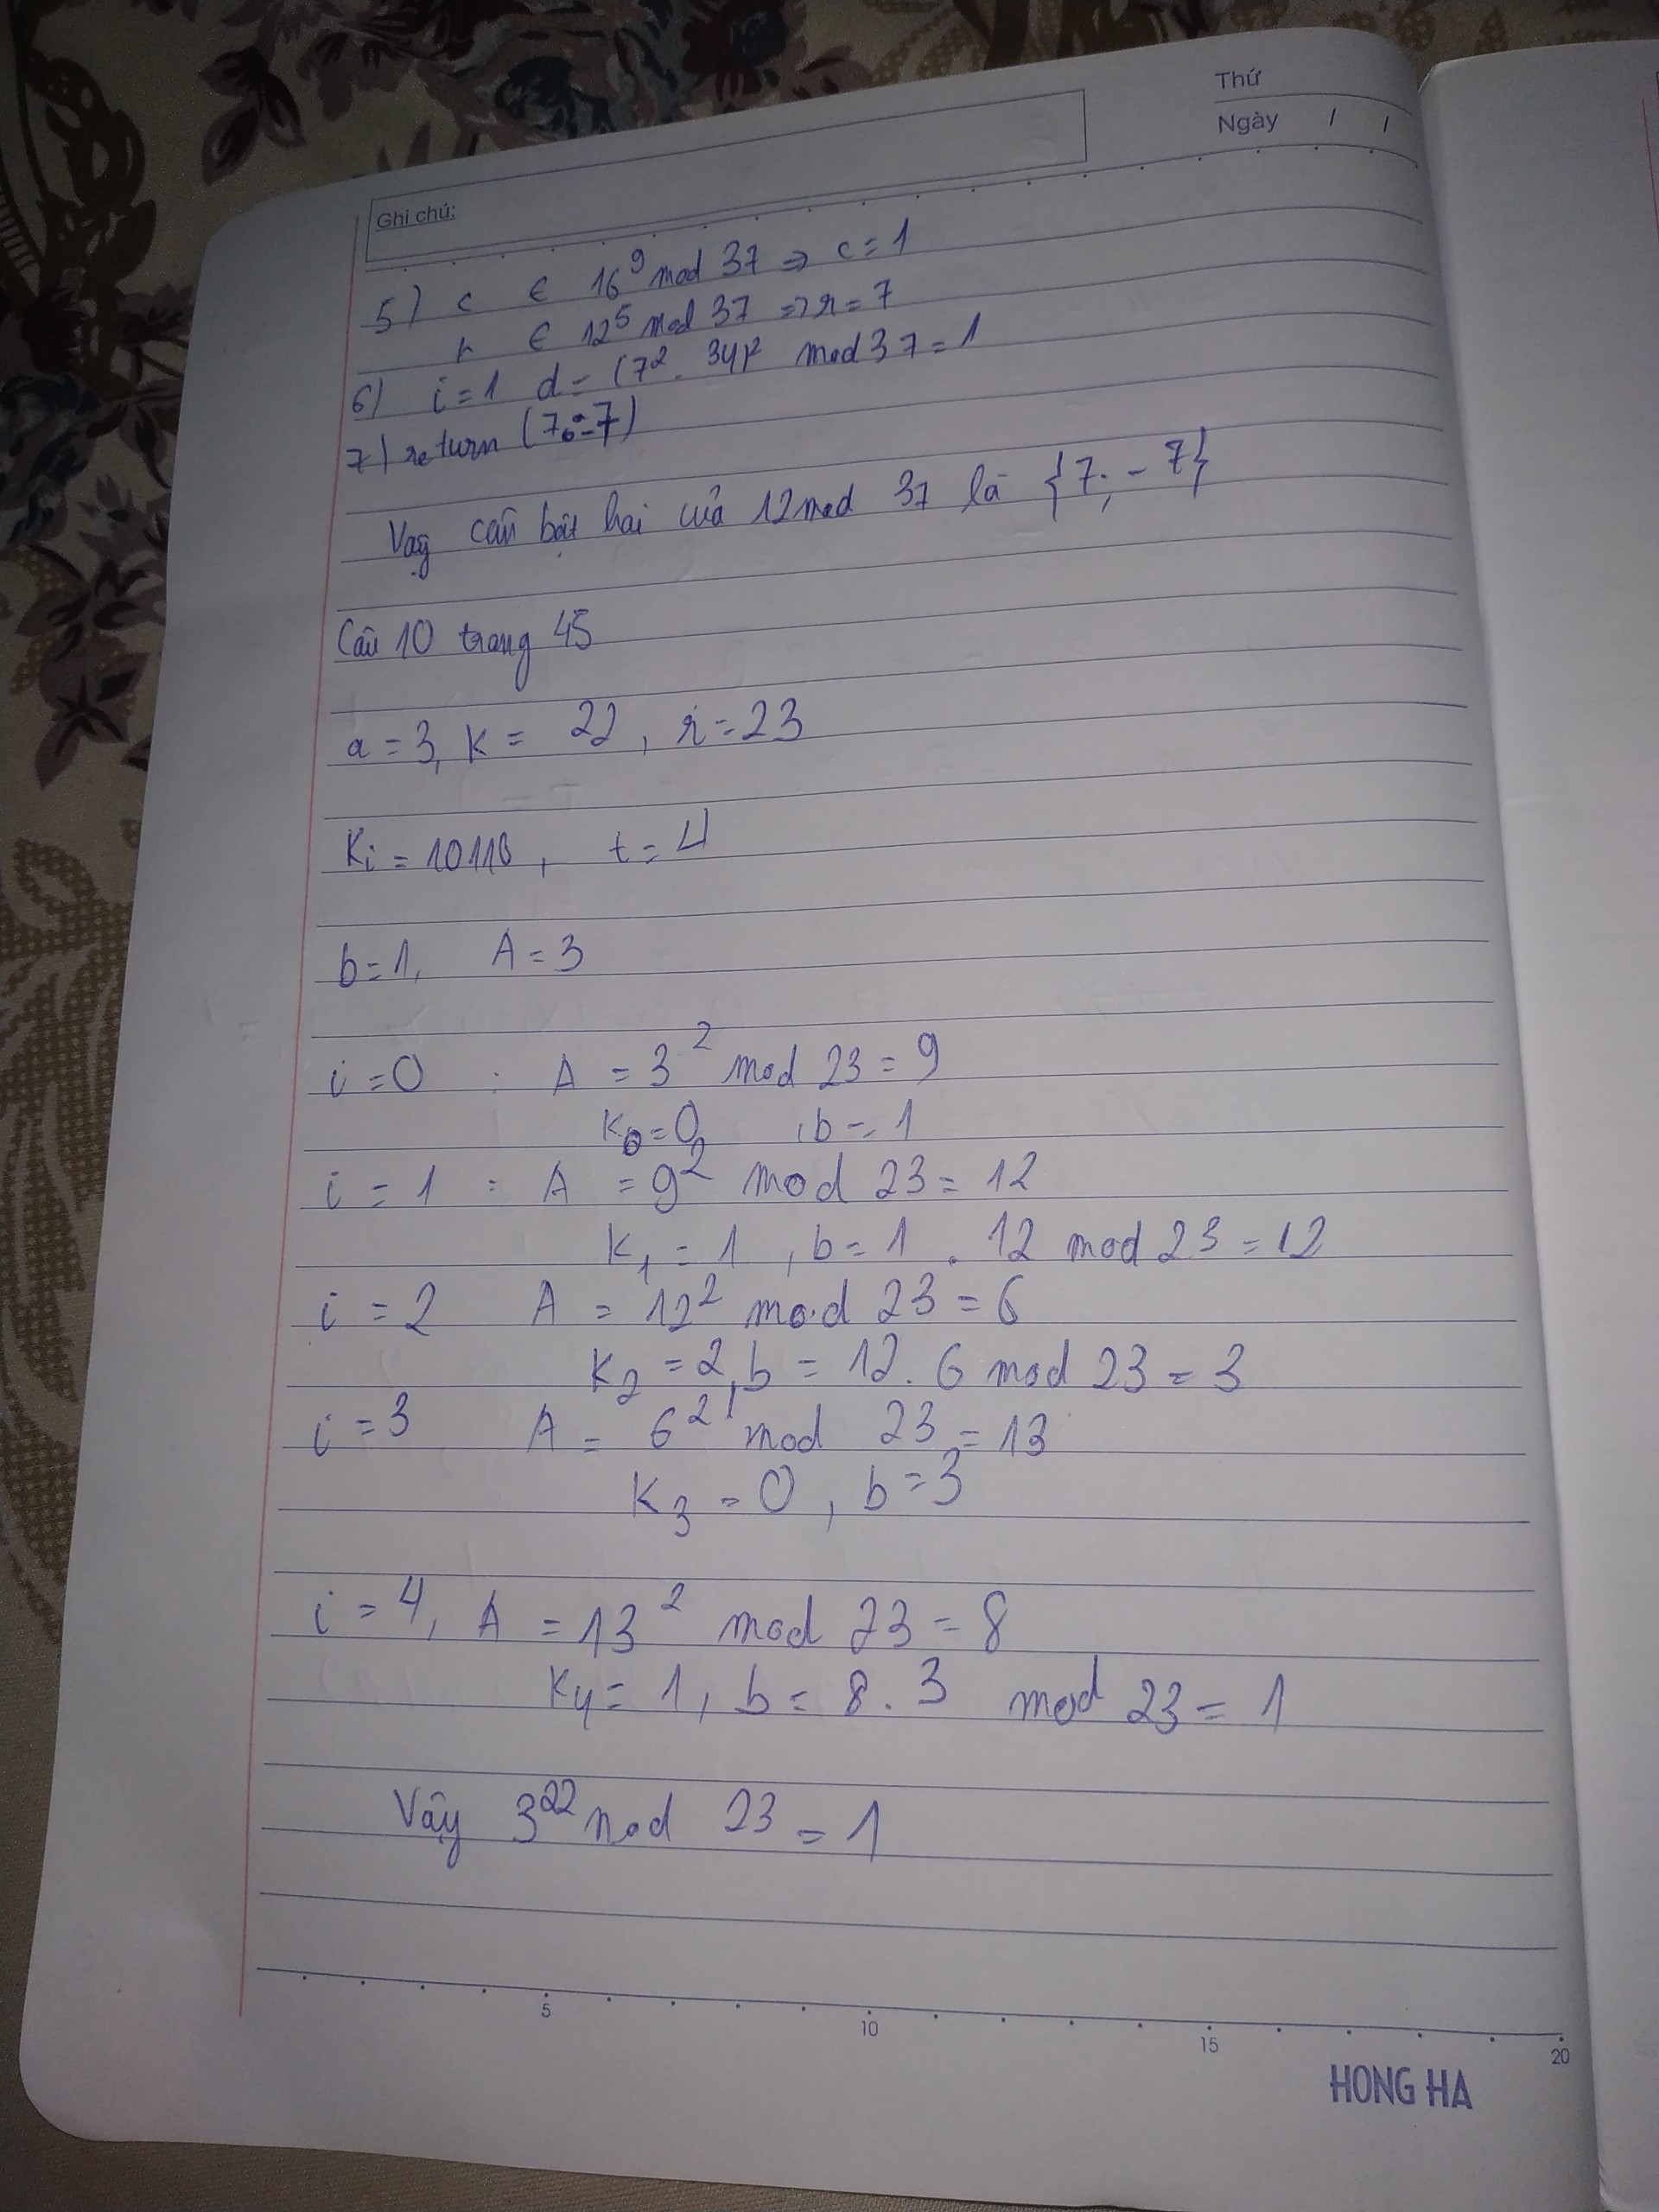 Thứ
Ngày / /
Ghi chú:
5) c ∈ 16⁹ mod 37 ⇒ c = 1
r ∈ 12⁵ mod 37 ⇒ r = 7
6) i = 1 d = (7² . 34)² mod 37 = 1
7) return (7, -7)
Vậy căn bậc hai của 12 mod 37 là {7; -7}
Câu 10 trang 45
a = 3, K = 22, r = 23
Ki = 10110, t = 4
b = 1, A = 3
i = 0 : A = 3² mod 23 = 9
K₀ = 0, b = 1
i = 1 : A = 9² mod 23 = 12
K₁ = 1, b = 1 . 12 mod 23 = 12
i = 2 A = 12² mod 23 = 6
K₂ = 2, b = 12 . 6 mod 23 = 3
i = 3 A = 6² mod 23 = 13
K₃ = 0, b = 3
i = 4, A = 13² mod 23 = 8
K₄ = 1, b = 8 . 3 mod 23 = 1
Vậy 3²² mod 23 = 1
5 10 15 20
HONG HA